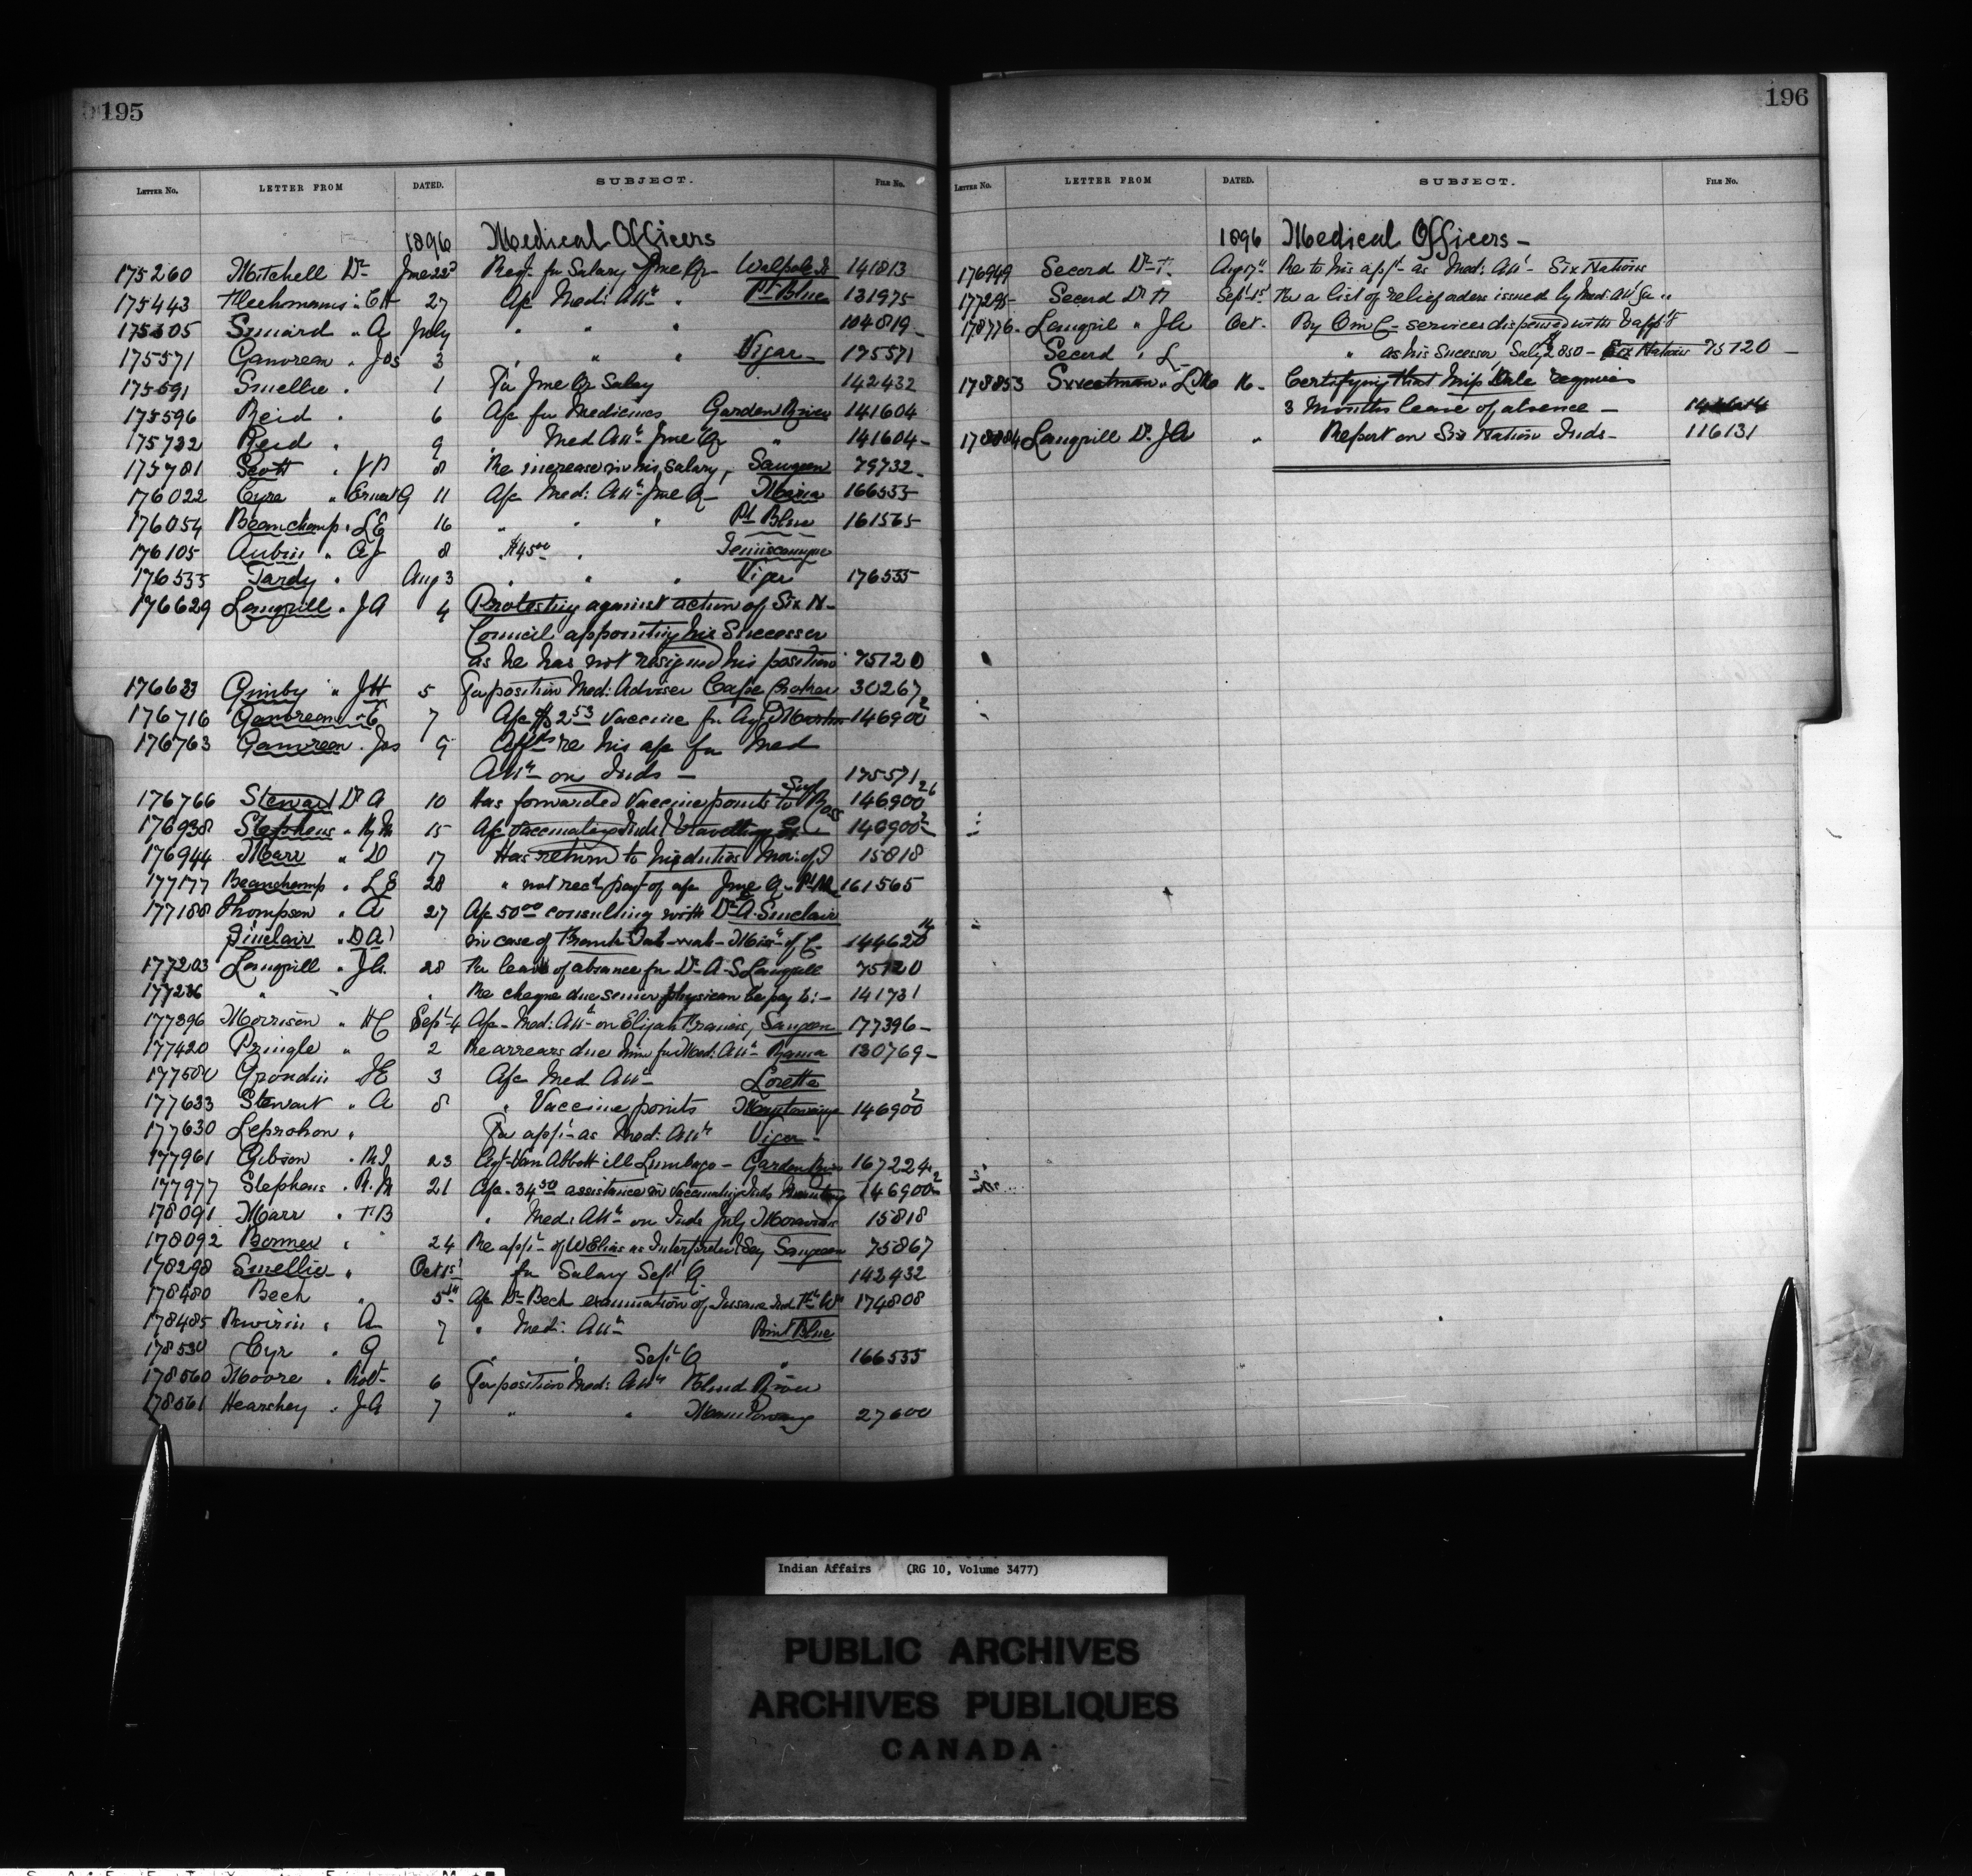 195
LETTER NO. LETTER FROM DATED. SUBJECT. FILE NO.
1896 Medical Officers
175260 Mitchell Dr June 22d Req. for Salary June Qr Walpole I 141813
175443 " CH 27 A/c Med: Attce " Pt Blue 131975
175505 Simard " A July " " " 104819
175571 Gauvreau " Jos 3 " " " Viger 175571
175591 Smellie " 1 For June Qr Salary 142432
175596 Reid " 6 A/c for Medicines Garden River 141604
175732 Reid " 9 Med Attce June Qr " 141604
175781 Scott " 8 Re increase in his salary, Saugeen 79732
176022 Cyre " Ernest G 11 A/c Med: Attce June Q Maria 166535
176054 Beauchamp " LE 16 " " " Pt Blue 161565
176105 Aubin " AJ 8 $45.00 " Temiscamque
176535 Tardy " Aug 3 " " " Viger 176535
176629 Langrill " JA 4 Protesting against action of Six N-
Council appointing his Successor
as he has not resigned his position 75120
176683 Gimby " JH 5 For position Med: Adviser Cape Croker 30267
176716 Gauvreau " E 7 A/c $2.53 Vaccine for Agt 146900 2
176763 Gauvreau " Jos 9 re his a/c for Med
Attce on Inds - 175571
176766 Stewart Dr A 10 Has forwarded Vaccine points to Supt Ross 146900 26
176938 Stephens " RM 15 A/c vaccinating Inds & travelling Ex 146900 2
176944 Marr " D 17 Has return to his duties Mor: of T 15818
177177 Beauchamp " LE 28 " not recd payt of a/c June Q - Pt Bl 161565
177188 Thompson " A 27 A/c 50.00 consulting with Dr A. Sinclair
Sinclair " D A) in case of Frank 144620 14
177203 Langrill " JA. 28 For leave of absence for Dr A-S Langrill 75120
177286 " " " Re cheque due senior physician be pay to:- 141731
177396 Morrison " HC Sept 4 A/c - Med: Attce on Elijah Francis, Saugeen 177396
177420 Pringle " 2 Re arrears due him for Med: Attce Rama 130769
177500 Grondin JE 3 A/c Med Attce Lorette
177633 Stewart " A 8 " Vaccine points 146900 2
177630 Leprohon " For appt as Med: Attce Viger -
177961 Gibson " 23 Agt Van Abbott ill Lumbago - Garden River 167224
177977 Stephens " R.M 21 A/c - 34.50 assistance in Vaccinating Inds 146900 2
178091 Marr " DB " Med: Attce on Inds July Moravian 15818
178092 Bonner " " 24 Re appt of W Elias as Interpreter & Sey Saugeen 75867
178298 Smellie " Oct 1st for Salary Sept Q 142432
178480 Beck " 5th A/c Dr Beck examination of Insane Ind 174808
178485 " A 7 " Med: Attce Point Blue
178530 Cyr " G " " Sept Q " 166535
178560 Moore " Robt 6 For position Med: Attce River
178561 Hearshey " JA 7 " " 27600
196
LETTER NO. LETTER FROM DATED. SUBJECT. FILE NO.
1896 Medical Officers -
176949 Secord Dr T. Aug 17th Re to his appt as Med: Attt Six Nations
177295 Secord Dr Sept 15t For a list of relief orders issued by Med: Att
178776 Langrill " JA Oct. By Om C - services dispensed with & appt
Secord " L " as his Sucessor Saly 2850 - Six Nations 75120 -
178853 Sweetman " 16 - Certifying that Miss Dale requires
3 Months leave of absence -
178884 Langrill Dr JA " Report on Six Nation Inds - 116131
Indian Affairs (RG 10, Volume 3477)
PUBLIC ARCHIVES
ARCHIVES PUBLIQUES
CANADA